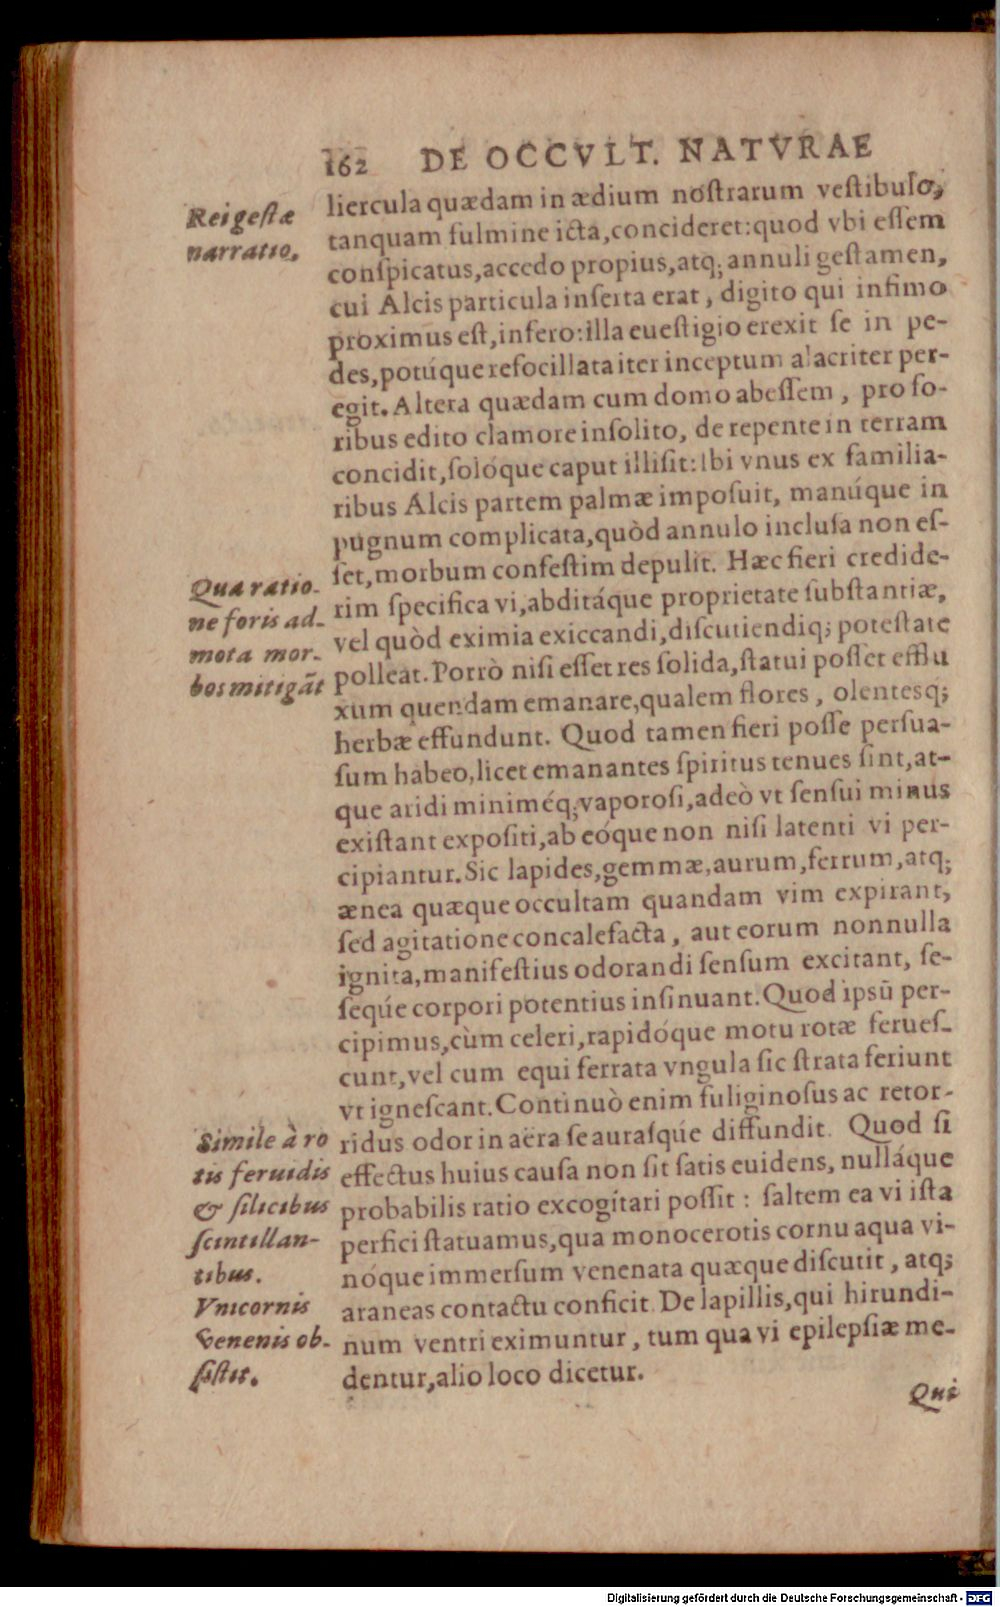 162 DE OCCVLT. NATVRAE
Rei gestæ
narratio.
liercula quædam in ædium nostrarum vestibulo,
tanquam fulmine icta, concideret: quod vbi essem
conspicatus, accedo propius, atq; annuli gestamen,
cui Alcis particula inserta erat, digito qui infimo
proximus est, infero: illa euestigio erexit se in pe-
des, potúque refocillata iter inceptum alacriter per-
egit. Altera quædam cum domo abessem, pro fo-
ribus edito clamore insolito, de repente in terram
concidit, solóque caput illisit: Ibi vnus ex familia-
ribus Alcis partem palmæ imposuit, manúque in
pugnum complicata, quòd annulo inclusa non es-
set, morbum confestim depulit. Hæc fieri credide-
Qua ratio-
ne foris ad-
mota mor-
bos mitigãt
rim specifica vi, abditáque proprietate substantiæ,
vel quòd eximia exiccandi, discutiendiq; potestate
polleat. Porrò nisi esset res solida, statui posset efflu
xum quendam emanare, qualem flores, olentesq;
herbæ effundunt. Quod tamen fieri posse persua-
sum habeo, licet emanantes spiritus tenues sint, at-
que aridi miniméq; vaporosi, adeò vt sensui minus
existant expositi, ab eóque non nisi latenti vi per-
cipiantur. Sic lapides, gemmæ, aurum, ferrum, atq;
ænea quæque occultam quandam vim expirant,
sed agitatione concalefacta, aut eorum nonnulla
ignita, manifestius odorandi sensum excitant, se-
seqúe corpori potentius insinuant. Quod ipsũ per-
cipimus, cùm celeri, rapidóque motu rotæ ferues-
cunt, vel cum equi ferrata vngula sic strata feriunt
vt ignescant. Continuò enim fuliginosus ac retor-
Simile à ro
tis feruidis
& silicibus
scintillan-
tibus.
Vnicornis
venenis ob-
sistit.
ridus odor in aëra se aurasqúe diffundit. Quod si
effectus huius causa non sit satis euidens, nulláque
probabilis ratio excogitari possit: saltem ea vi ista
perfici statuamus, qua monocerotis cornu aqua vi-
nóque immersum venenata quæque discutit, atq;
araneas contactu conficit. De lapillis, qui hirundi-
num ventri eximuntur, tum qua vi epilepsiæ me-
dentur, alio loco dicetur.
Qui
Digitalisierung gefördert durch die Deutsche Forschungsgemeinschaft - DFG